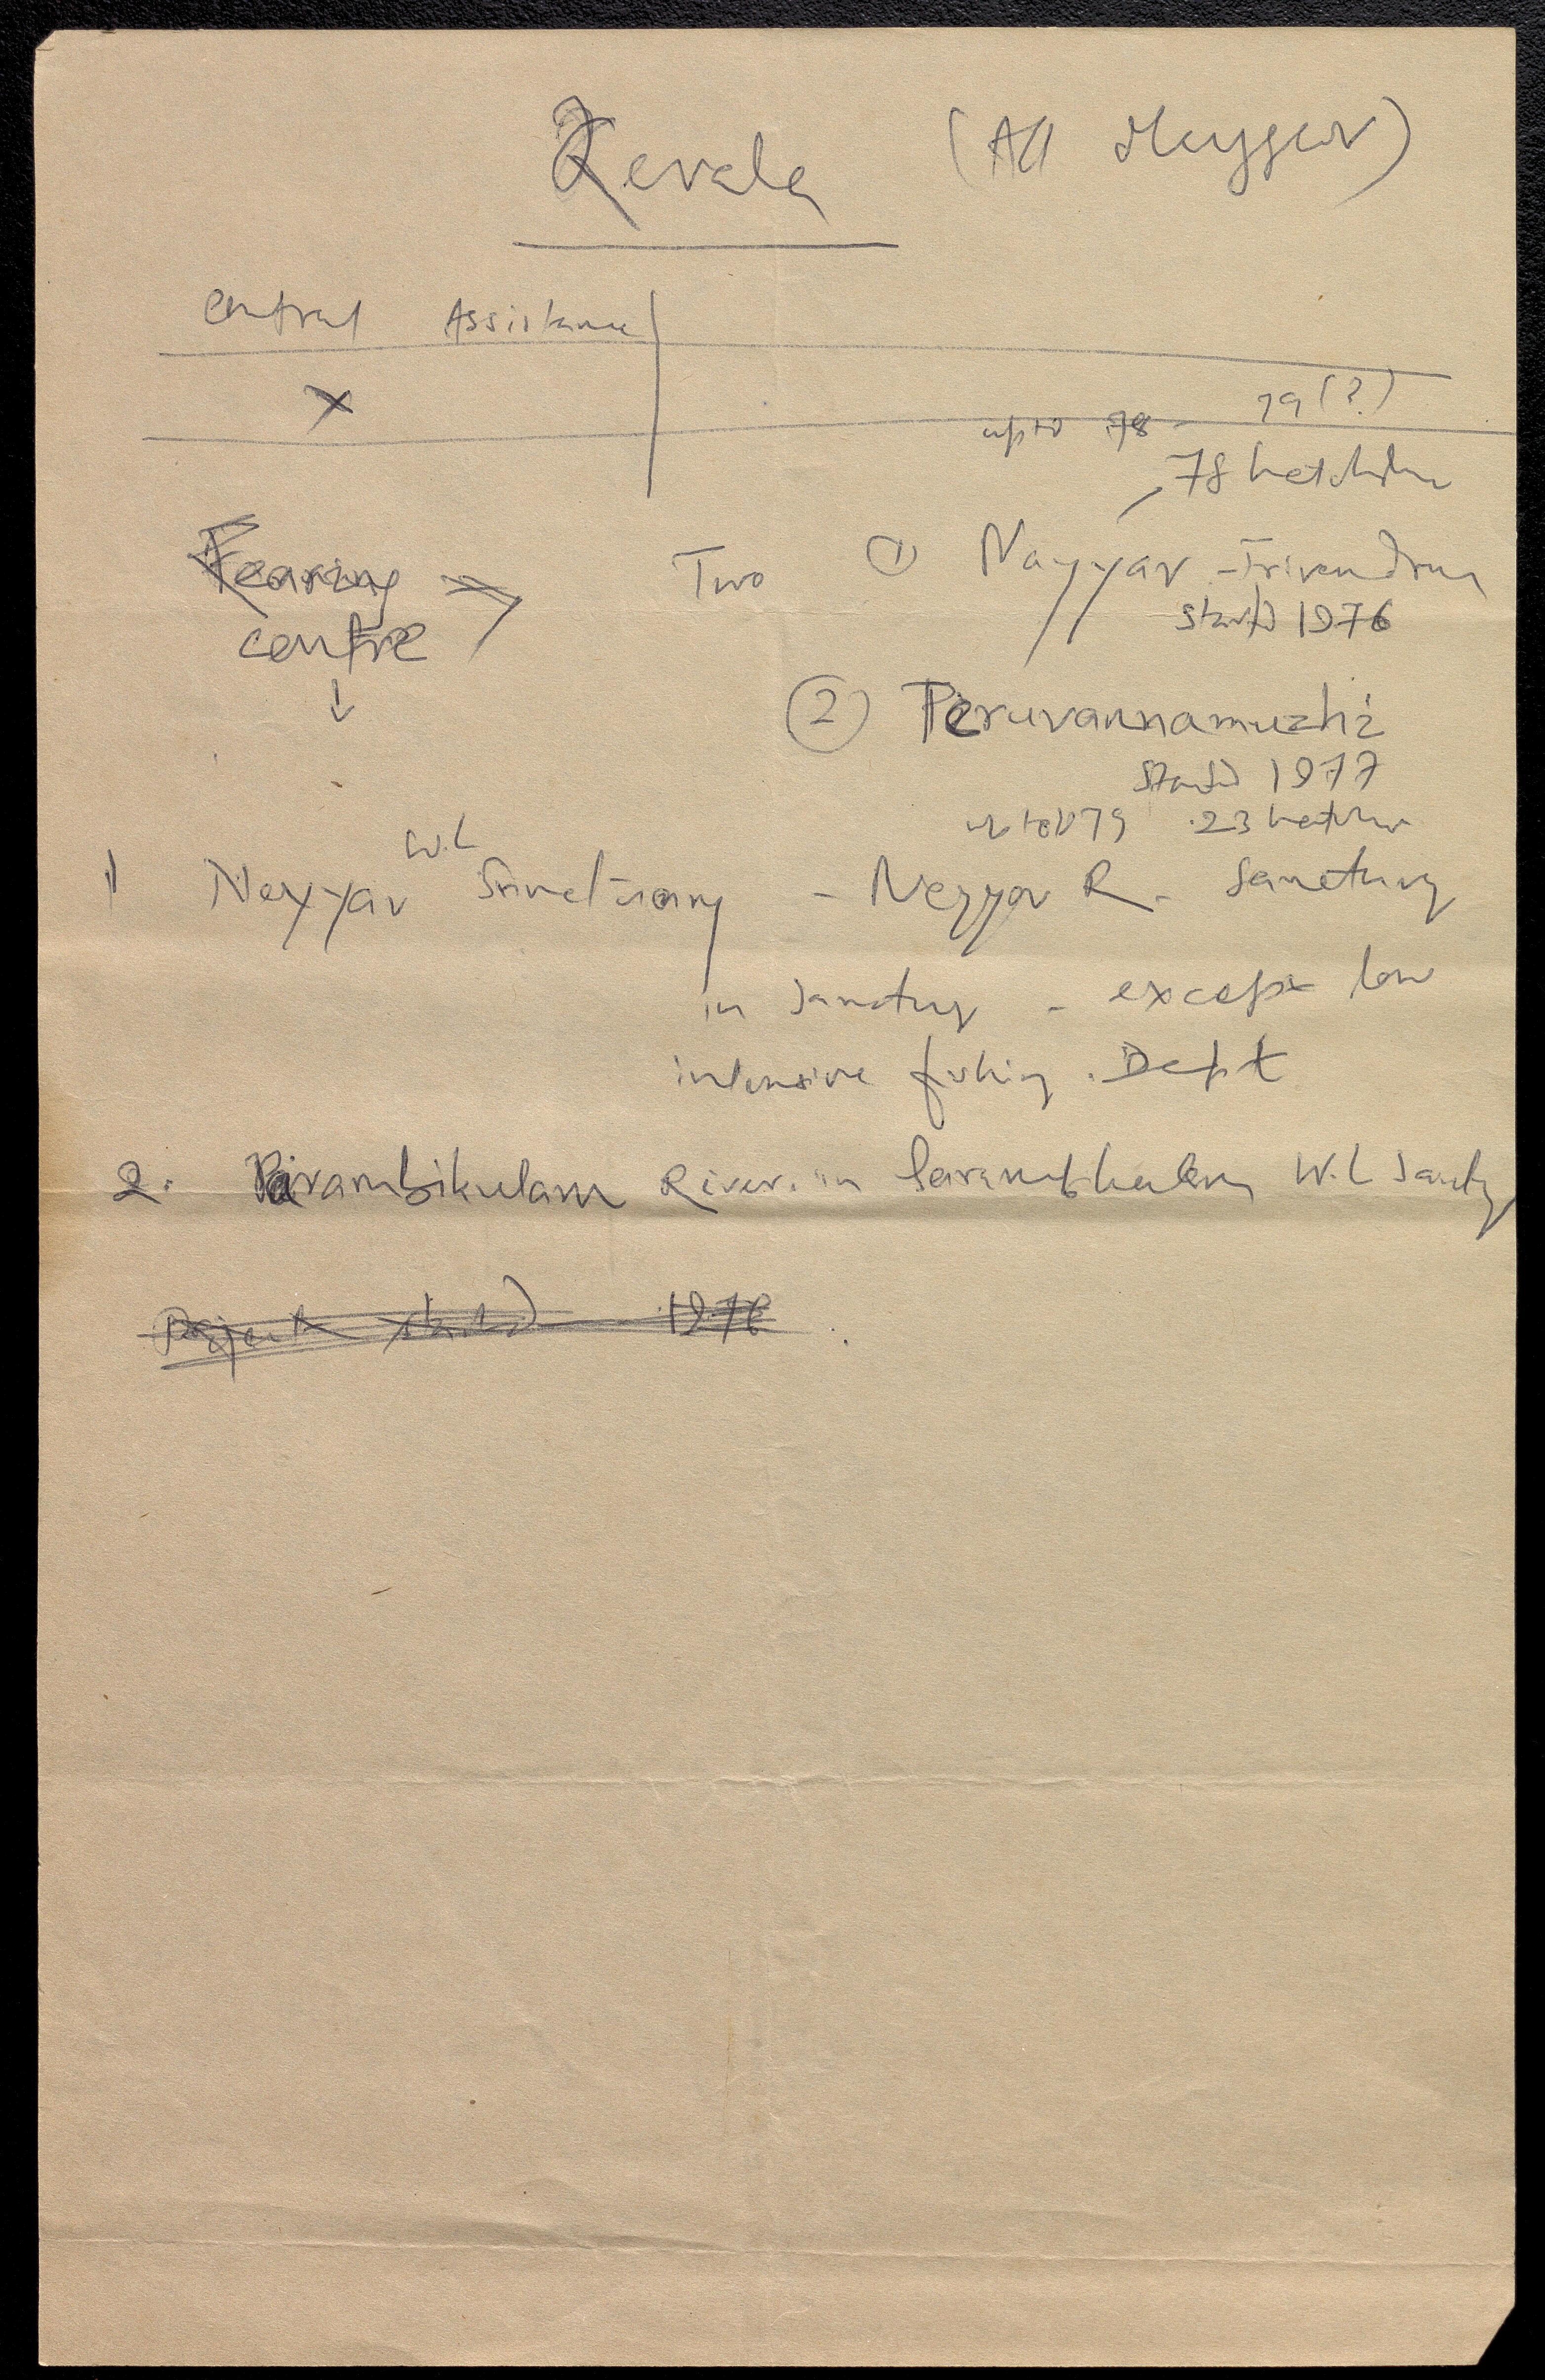 Kerala (All Mugger)
Central Assistance
X
upto 78 - 79 (?)
78 hatchlin
Rearing → Two ① Nayyar - Trivendrum
centre started 1976
↓
② Peruvannamuzhi
started 1977
79 23 hatchlin
W.L
1 Neyyar Sanctuary - Neyyar R. Sanctuary
in Sanctuary - except low
intensive fishing. Dept
2. Parambikulam River. in Parambikulam W.L Sancty
Project started 1976